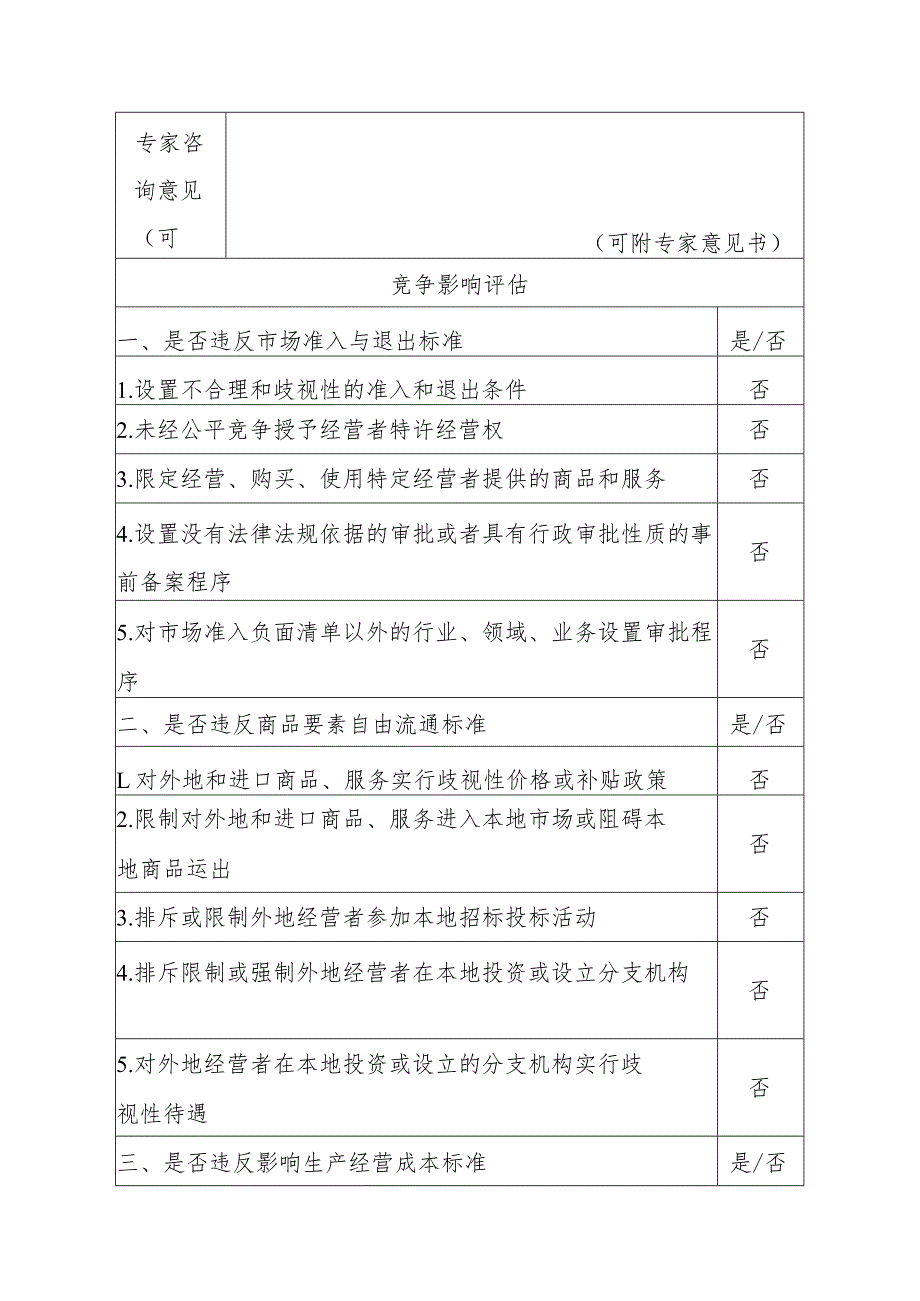 专家咨
询意见
（可
（可附专家意见书）
竞争影响评估
一、是否违反市场准入与退出标准 是/否
1.设置不合理和歧视性的准入和退出条件 否
2.未经公平竞争授予经营者特许经营权 否
3.限定经营、购买、使用特定经营者提供的商品和服务 否
4.设置没有法律法规依据的审批或者具有行政审批性质的事
前备案程序
否
5.对市场准入负面清单以外的行业、领域、业务设置审批程
序
否
二、是否违反商品要素自由流通标准 是/否
L 对外地和进口商品、服务实行歧视性价格或补贴政策 否
2.限制对外地和进口商品、服务进入本地市场或阻碍本
地商品运出
否
3.排斥或限制外地经营者参加本地招标投标活动 否
4.排斥限制或强制外地经营者在本地投资或设立分支机构
否
5.对外地经营者在本地投资或设立的分支机构实行歧
视性待遇
否
三、是否违反影响生产经营成本标准 是/否